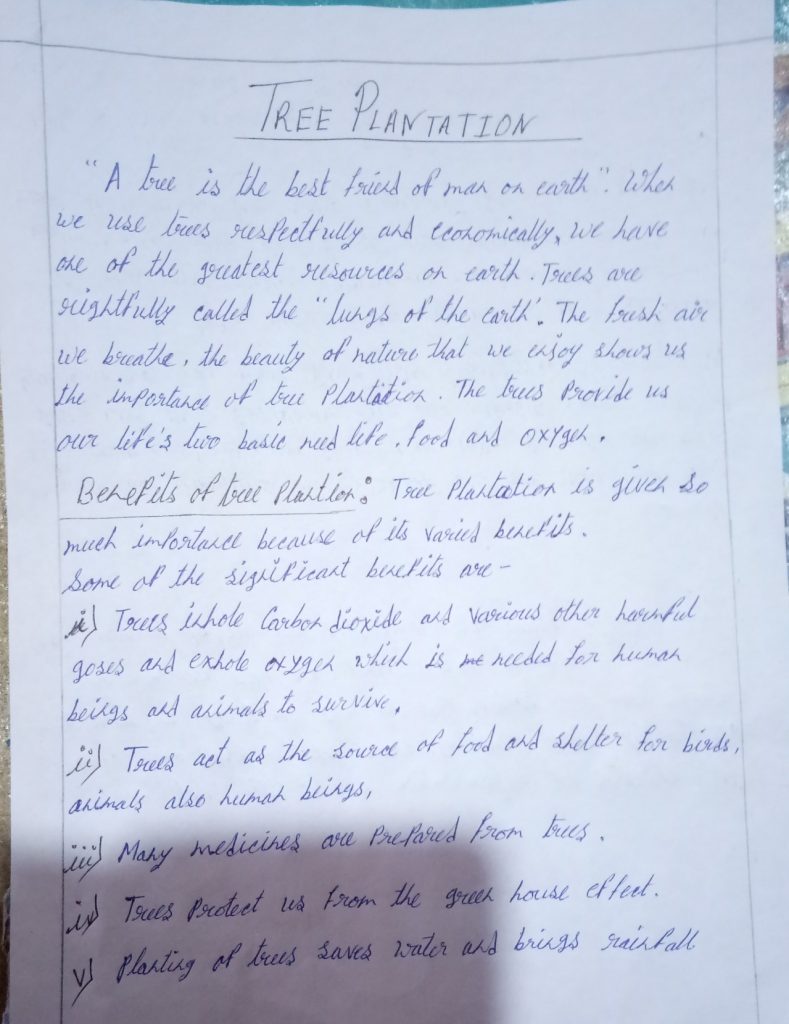 TREE PLANTATION
"A tree is the best friend of man on earth". When
we use trees respectfully and economically, we have
one of the greatest resources on earth. Trees are
rightfully called the "lungs of the earth'. The fresh air
we breathe, the beauty of nature that we enjoy shows us
the importance of tree Plantation. The trees Provide us
our life's two basic need life, food and oxygen.
Benefits of tree Plantion: Tree Plantation is given so
much importance because of its varied benefits.
Some of the significant benefits are -
i) Trees inhole Carbon dioxide and various other harmful
goses and exhole oxygen which is needed for human
beings and animals to survive.
ii) Trees act as the source of food and shelter for birds,
animals also human beings,
iii) Many medicines are Prepared from trees.
iv) Trees Protect us from the green house effect.
v) Planting of trees saves water and brings rainfall